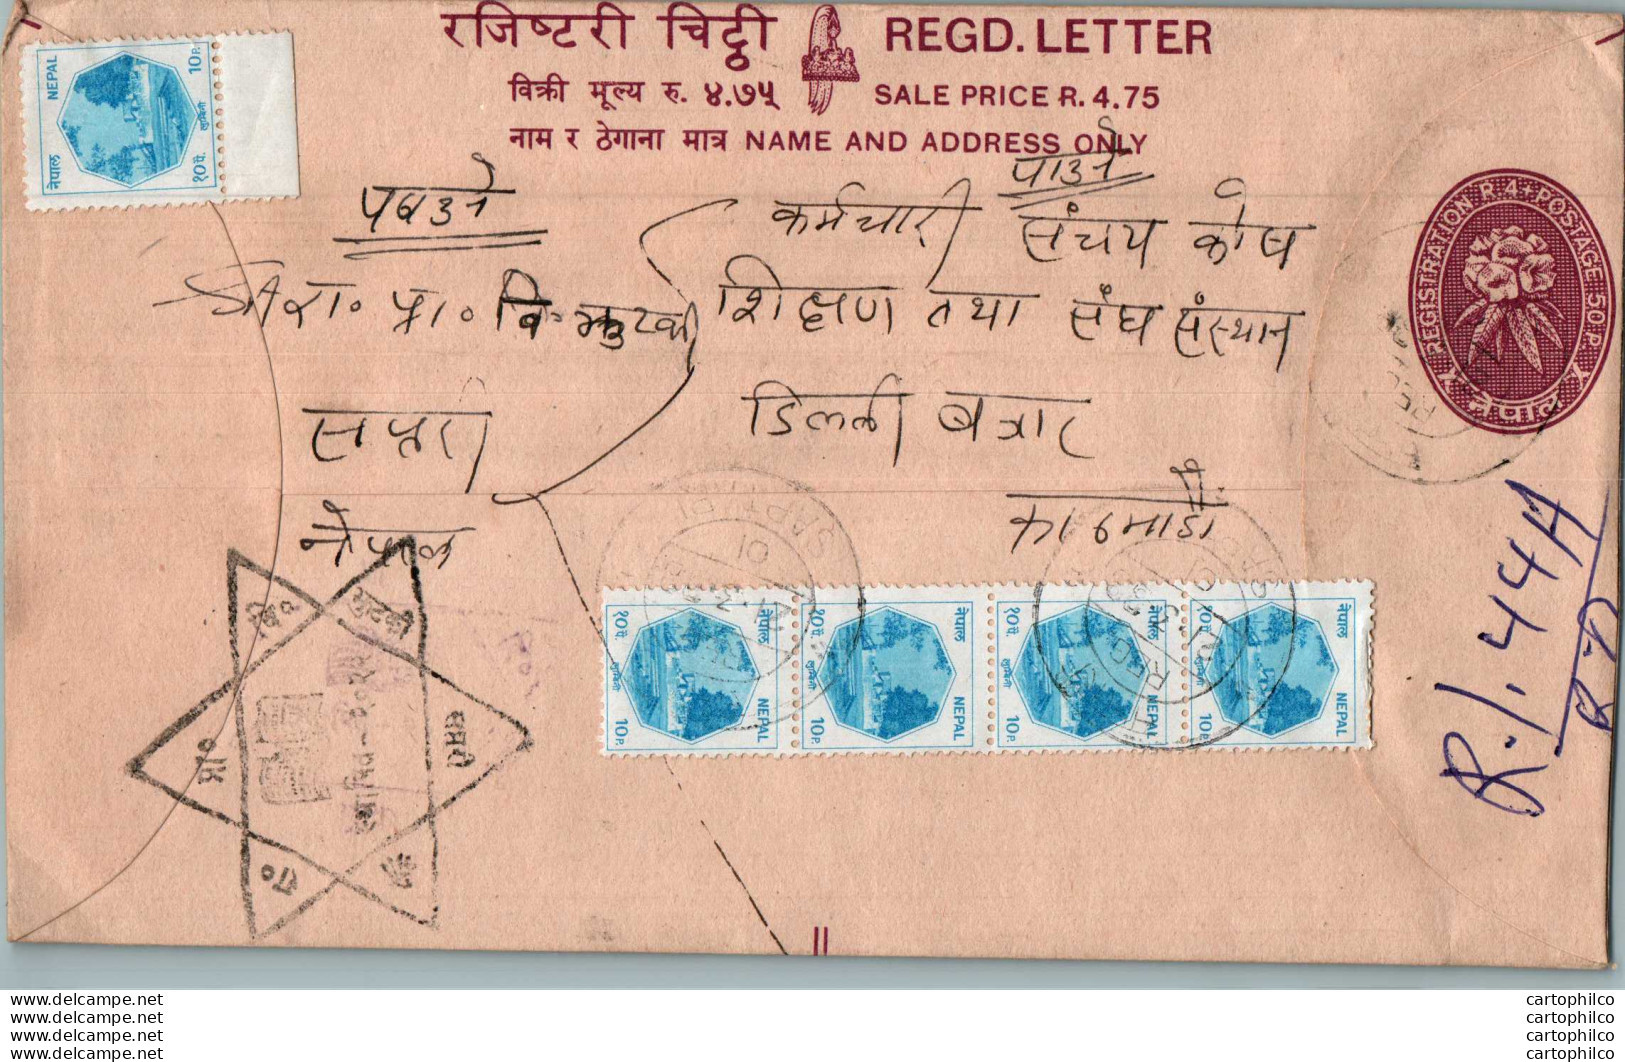 रजिष्टरी चिट्ठी REGD. LETTER
विक्री मूल्य रु. ४.७५ SALE PRICE R. 4.75
नाम र ठेगाना मात्र NAME AND ADDRESS ONLY
NEPAL 10 P.
नेपाल १० पै.
लुम्बिनी
REGISTRATION R. 4 + POSTAGE 50 P.
नेपाल
पाउने
कर्मचारी संचय कोष
शिक्षण तथा संघ संस्थान
डिल्ली बजार
काठमाडौं
श्री रा. प्रा. वि.
सप्तरी
नेपाल
R. 1. 44A
१० पै. नेपाल
लुम्बिनी
10 P. NEPAL
१० पै. नेपाल
लुम्बिनी
10 P. NEPAL
१० पै. नेपाल
लुम्बिनी
10 P. NEPAL
१० पै. नेपाल
लुम्बिनी
10 P. NEPAL
www.delcampe.net
www.delcampe.net
www.delcampe.net
www.delcampe.net
cartophilco
cartophilco
cartophilco
cartophilco